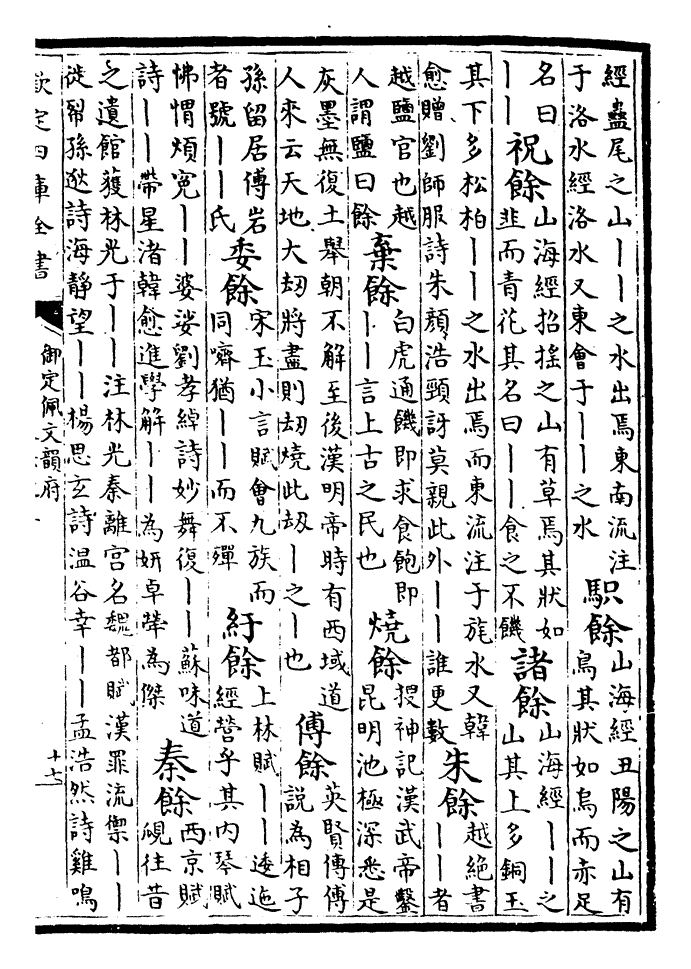 經蠱尾之山丨丨之水出焉東南流注
于洛水經洛水又東會于丨丨之水
餘
山海經丑陽之山有
鳥其狀如烏而赤足
名曰
丨丨
祝餘
山海經招搖之山有草焉其狀如
韭而青花其名曰丨丨食之不饑
諸餘
山海經丨丨之
山其上多銅玉
其下多松柏丨丨之水出焉而東流注于旄水又韓
愈贈劉師服詩朱顏浩頸訝莫親此外丨丨誰更數
朱餘
越絕書
丨丨者
越鹽官也越
人謂鹽曰餘
棄餘
白虎通饑即求食飽即
丨丨言上古之民也
燒餘
搜神記漢武帝鑿
昆明池極深悉是
灰墨無復土舉朝不解至後漢明帝時有西域道
人來云天地大劫將盡則劫燒此劫丨之丨也
傅餘
英賢傳傅
說為相子
孫留居傅岩
者號丨丨氏
委餘
宋玉小言賦會九族而
同嚌猶丨丨而不殫
紆餘
上林賦丨丨逶迤
經營乎其內琴賦
怫愲煩寃丨丨婆娑劉孝綽詩妙舞復丨丨蘇味道
詩丨丨帶星渚韓愈進學解丨丨為妍卓犖為傑
秦餘
西京賦
覛往昔
之遺館獲林光于丨丨注林光秦離宮名魏都賦漢罪流禦丨丨
徙帑孫逖詩海靜望丨丨楊思玄詩温谷幸丨丨孟浩然詩雞鳴
欽定四庫全書
御定佩文韻府
十七